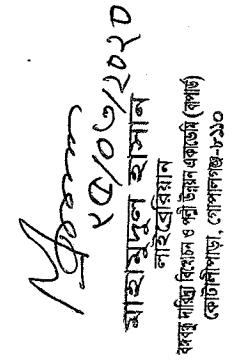 ২৫/০৩/২০২০
মাহামুদুল হাসান
লাইব্রেরিয়ান
বঙ্গবন্ধু দারিদ্র্য বিমোচন ও পল্লী উন্নয়ন একাডেমি (বাপার্ড)
কোটালীপাড়া, গোপালগঞ্জ-৮১১০